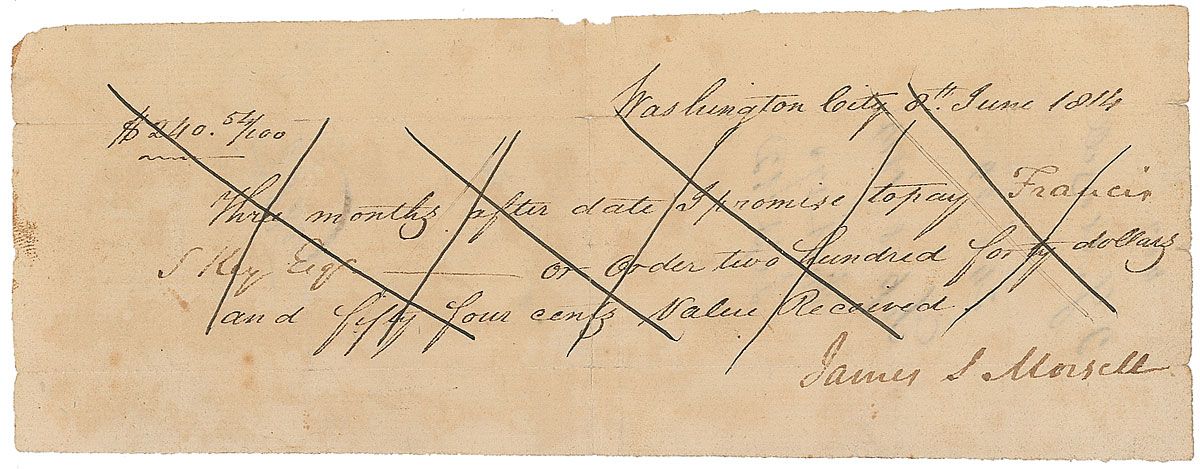 Washington City 8th June 1814
$240. 54/100
Three months after date I promise to pay Francis
S Key Esqr. ——— or order two hundred forty dollars
and fifty four cents Value Received.
James S Morsell